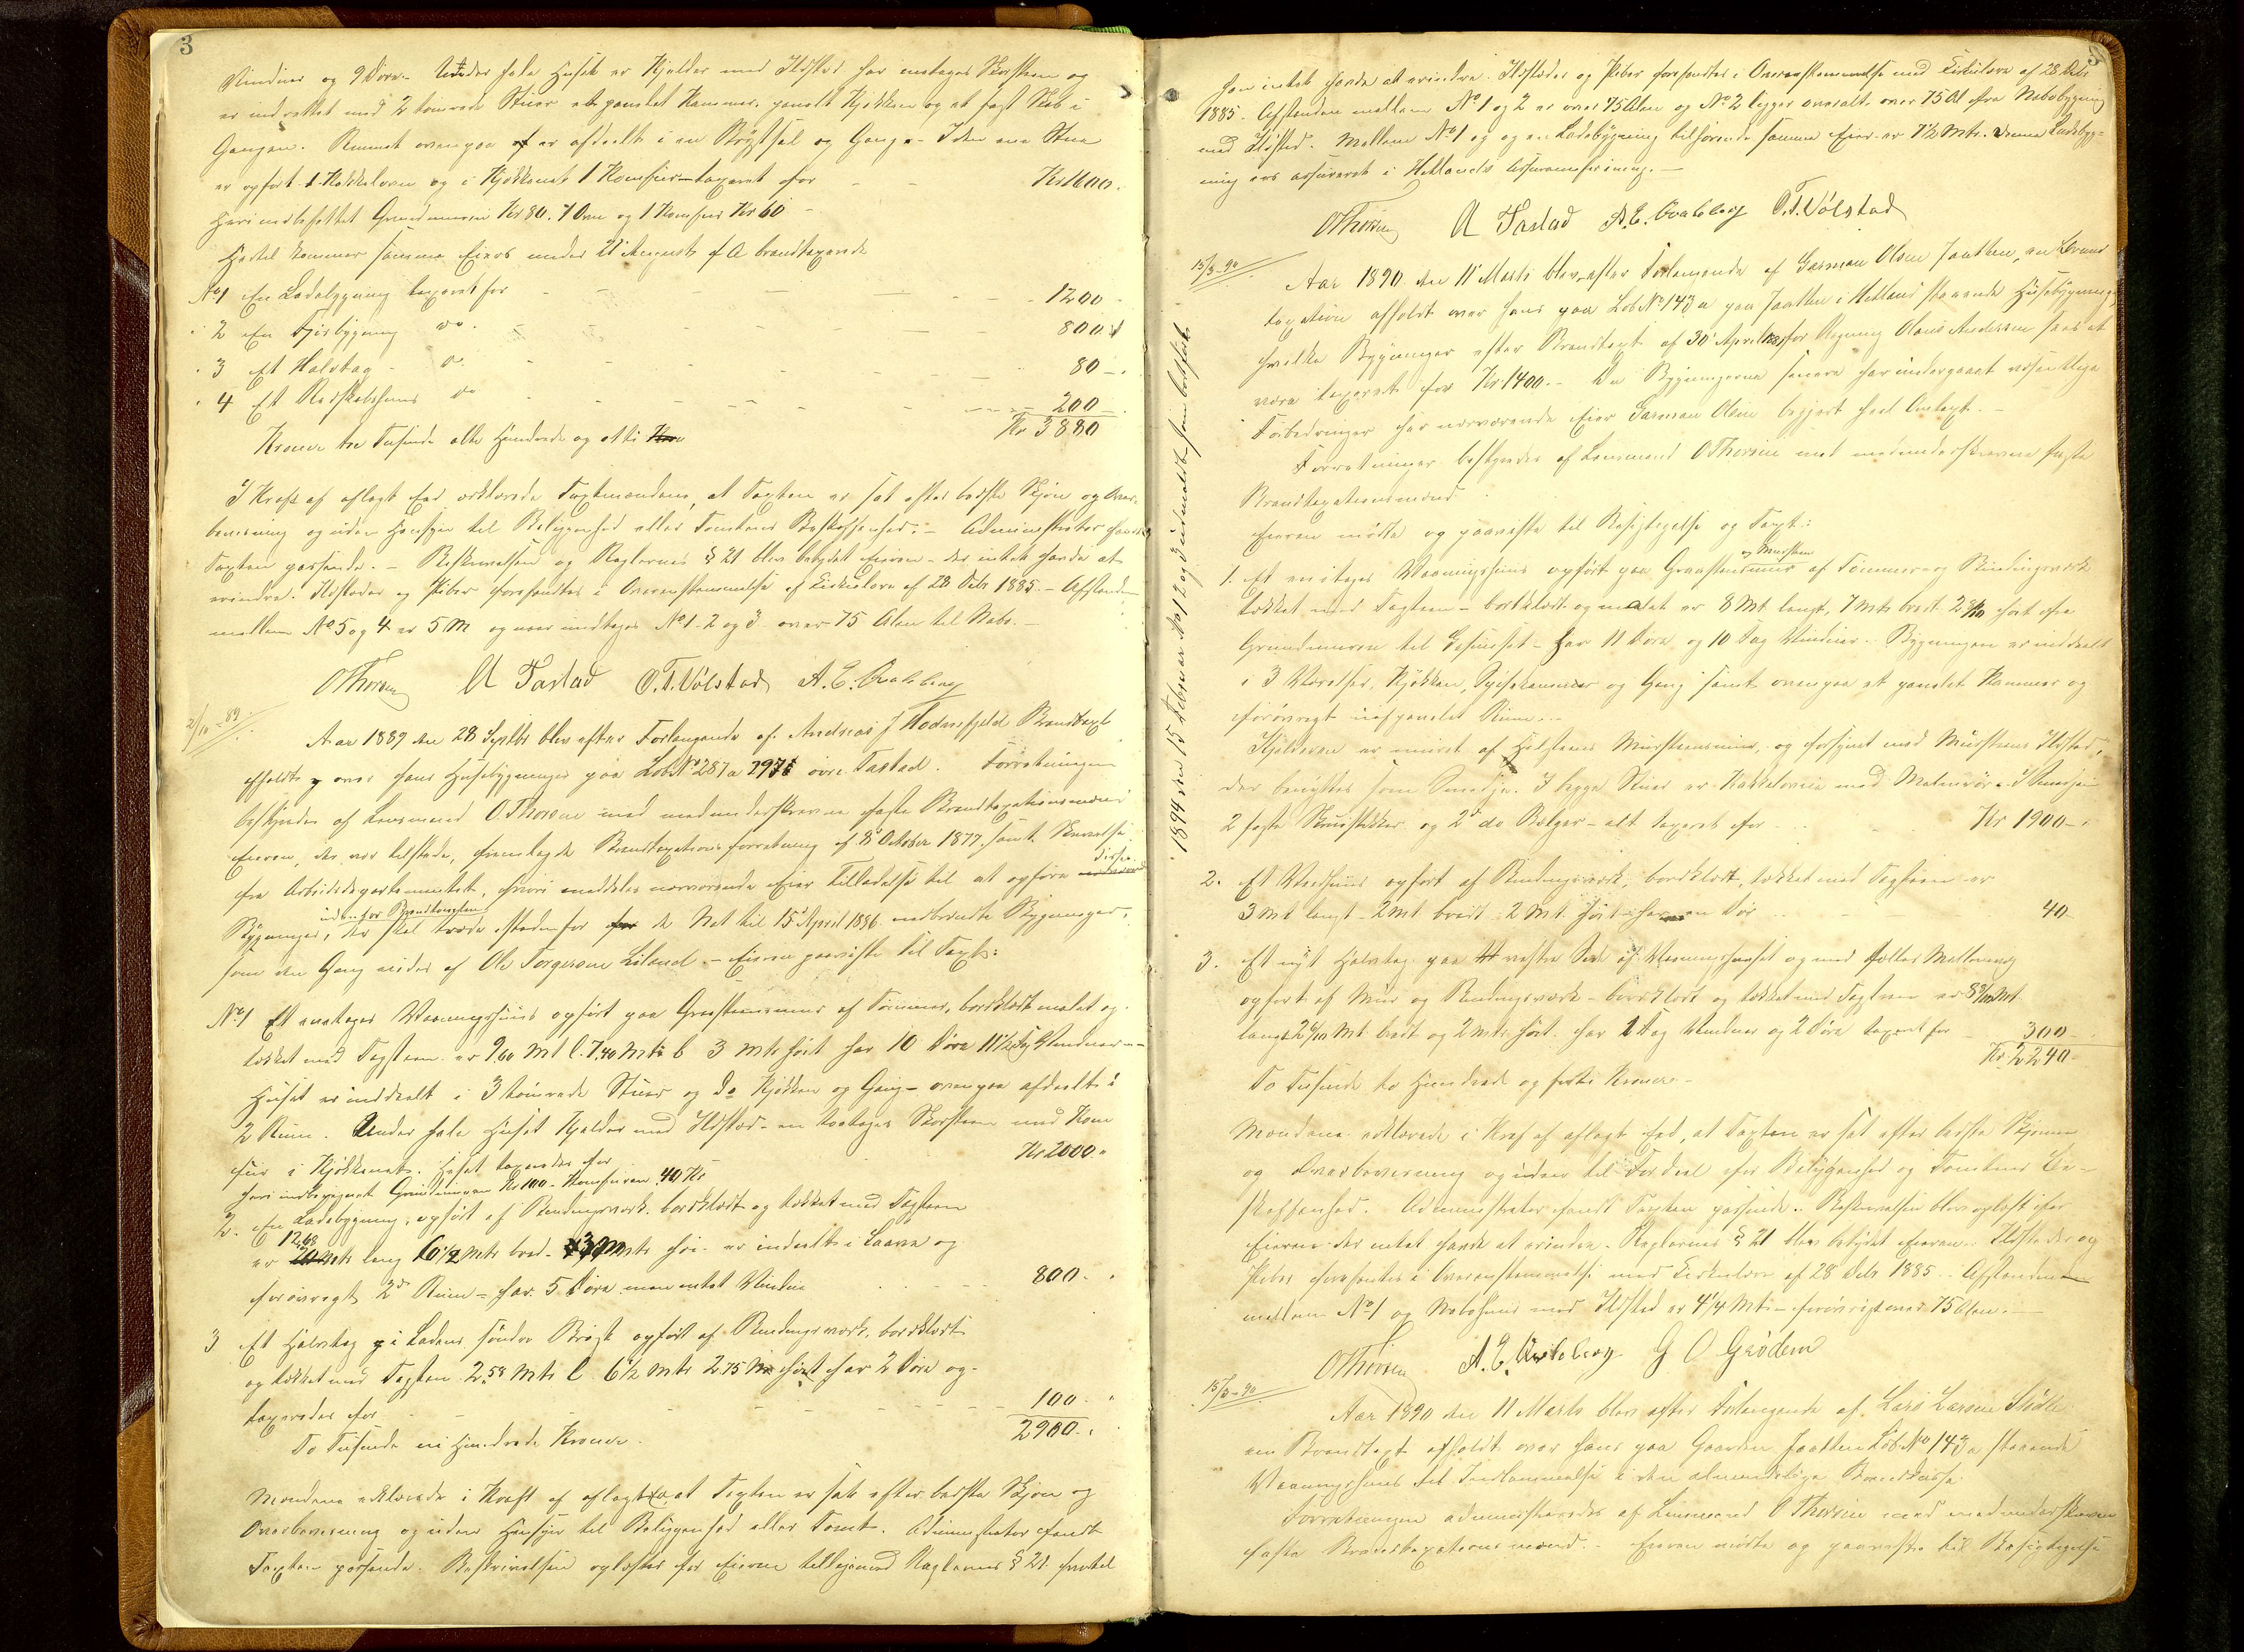 3
Vinduer og 9 Døre. Under hele Huset er Kjelder med Ildsted har eetages Skorsteen og
er indrettet med 2 tømrede Stuer et panelet Kammer, panelt Kjøkken og et fast Skab i
Gangen. Rummet ovenpaa er afdeelt i en Brystsal og Gang. I den ene Stue
er opført 1 Kakkelovn og i Kjøkkenet 1 Komfur taxeret for Kr 1600.
Heri indbefattet Grundmuren Kr 80. 1 Ovn og 1 Komfur Kr 60
Hertil kommer samme Eiers under 21 August f A brandtaxerede
No 1 En Ladebygning taxeret for 1200
" 2 En Fjøsbygning do. 800
" 3 Et Halvtag do 80
" 4 Et Redskabshuus do 200
Kroner tre Tusinde otte Hundrede og otti Kr 3880
I Kraft af aflagt Eed erklærede Taxtmændene, at Taxten er sat efter bedste Skjøn og Over-
bevisning og uden Hensyn til Beliggenhed eller Tomtens Beskaffenhed. Administrator fandt
Taxten passende. Beskrivelsen og Reglernes § 21 blev betydet Eieren der intet havde at
erindre. Ildsteder og Piber forefandtes i Overensstemmelse af Cirkulære af 28 Debr 1885. Afstanden
mellem No 5 og 4 er 5 M og naar undtages No 1. 2 og 3 over 75 Alen til Nabo.
OThorsen A Tastad O.T.Vølstad A. E. Qvaleberg
2/10-89.
Aar 1889 den 28 Septbr blev efter Forlangende af Andreas J Hodnefjeld Brandtaxt
afholdt over hans Husebygninger paa Løb No 287a 297 øvre Tastad. Forretningen
bestyredes af Lensmand O Thorsen med medunderskrevne faste Brandtaxationsmænd
Eieren, der var tilstede, fremlagde Brandtaxationsforretning af 8 October 1877 samt Skrivelse
fra Arbeidsdepartementet, hvori meddeles nærværende Eier Tilladelse til at opføre disse
Bygninger, der skal træde istedenfor de Nat til 15 April 1886 nedbrændte Bygninger,
uden for Brandtomten
som den Gang eiedes af Ole Torgersen Leland. Eieren paaviste til Taxt:
No 1 Et eetages Vaaningshuus opført paa Graasteensmur af Tømmer, bordklædt malet og
tækket med Tagsteen er 9,60 Mt l. 7,40 Mtr b 3 Mtr høit har 10 Døre 11½ Fag Vinduer
Huset er inddeelt i 3 tømrede Stuer og do Kjøkken og Gang ovenpaa afdeelt i
2 Rum. Under hele Huset Kjelder med Ildsted en toetages Skorsteen med Kom
fur i Kjøkkenet. Huset taxeredes for Kr 2000.
heri indberegnet Grundmuren Kr 100 Komfuren 40 Kr
2. En Ladebygning opført af Bindingsværk bordklædt og tækket med Tagsteen
er 12,68 Mtr lang 6½ Mtr bred 3 Mtr høi er inddeelt i Laave og
forøvrigt 2de Rum har 5 Døre men intet Vindue 800.
3 Et Halvtag i Ladens søndre Bryst opført af Bindingsværk, bordklædt
og tækket med Tagsten 2,58 Mtr l. 6½ Mtr 2,75 høit har 2 Døre og
taxeredes for 100.
To Tusinde ni Hundrede Kroner 2900.
Mændene erklærede i Kraft af aflagt Eed at Taxten er sat efter bedste Skjøn og
Overbevisning og uden Hensyn til Beliggenhed eller Tomt. Administrator fandt
Taxten passende. Beskrivelsen oplæstes for Eieren tilligemed Reglernes § 21. hvortil
3
han intet havde at erindre. Ildsteder og Piber forefandtes i Overensstemmelse med Cirkulære af 28 Debr
1885. Afstanden mellem No 1 og 2 er over 75 Alen og No 2 ligger overalt over 75 Al fra Nabobygning
med Ildsted. Mellem No 1 og en Ladebygning tilhørende samme Eier er 7½ Mtr. Denne Ladebyg-
ning ers assureret i Hetlands Assuranceforening.
OThorsen A Tastad A. E. Qvaleberg O.T.Vølstad
15/3-90
Aar 1890 den 11 Marts blev efter Forlangende af Garman Olsen Jaatten, en Brand
taxation afholdt over hans paa Løb No 143a paa Jaatten i Hetland staaende Husebygninger
hvilke Bygninger efter Brandtaxt af 30 April for Regning Olaus Andersen saaes at
være taxeret for Kr 1400. Da Bygningerne senere har undergaaet væsentlige
Forbedringer har nærværende Eier Garman Olsen begjært heel Omtaxt.
Forretningen bestyredes af Lensmand OThorsen med medunderskrevne faste
Brandtaxationsmænd.
Eieren mødte og paaviste til Besigtigelse og Taxt:
og Mursteen
1. Et eetages Vaaningshuus opført paa Graasteensmur af Tømmer og Bindingsværk
tækket med Tagsteen bordklædt og malet er 8 Mt langt, 7 Mtr bredt 2 8/10 høit fra
Grundmuren til Gesimset har 11 Døre og 10 Fag Vinduer. Bygningen er inddeelt
i 3 Værelser, Kjøkken, Spisekammer og Gang samt ovenpaa et panelet Kammer og
forøvrigt uafpanelet Rum.
Kjelderen er muret af Helsteens Mursteensmur, og forsynet med Mursteens Ildsted,
der benyttes som Smedje. I begge Stuer er Kakkelovne med Malmrør. I Smedjen
2 faste Skruestikker og 2 do Belger alt taxeret for Kr 1900
2. Et Vedhuus opført af Bindingsværk, bordklædt, tækket med Tagsteen er
3 Mt langt 2 Mt bredt 2 Mt. høit har en Dør 40
3. Et nyt Halvtag paa vestre Side af Vaaningshuset og med fælles Mellemvæg
opført af Mur og Bindingsværk bordklædt og tækket med Tagsteen er 8 Mt.
langt 2 6/10 Mt. bredt og 2 Mtr høit. har 1 Fag Vinduer og 2 Døre taxeret for 300
To Tusinde to Hundrede og forti Kroner Kr 2240
Mændene erklærede i Kraf af aflagt Eed, at Taxten er sat efter bedste Skjønne
og Overbevisning og uden til Fordeel for Beliggenhed og Tomtens Be-
skaffenhed. Administrator fandt Taxten passende. Beskrivelsen blev oplæst for
Eieren der intet havde at erindre. Reglernes § 21 blev betydet Eieren. Ildsteder og
Piber forefandtes i Overensstemmelse med Cirkulære af 28 Debr 1885. Afstanden
mellem No 1 og Nabohuus med Ildsted er 4¼ Mtr forøvrigt over 75 Alen.
OThorsen A. E. Qvaleberg G O Grødem
15/3-90
Aar 1890 den 11 Marts blev efter Forlangende af Lars Larsen
en Brandtaxt afholdt over hans paa Gaarden Jaatten Løb No 143a staaende
Vaaningshuus til Indlemmelse i den almindelige Brandkasse.
Forretningen administreredes af Lensmand O Thorsen med medunderskrevne
faste Brandtaxationsmænd. Eieren mødte og paaviste til Besigtigelse
1894 den 15 Februar No 1, 2 og 3 udmeldt som bortført